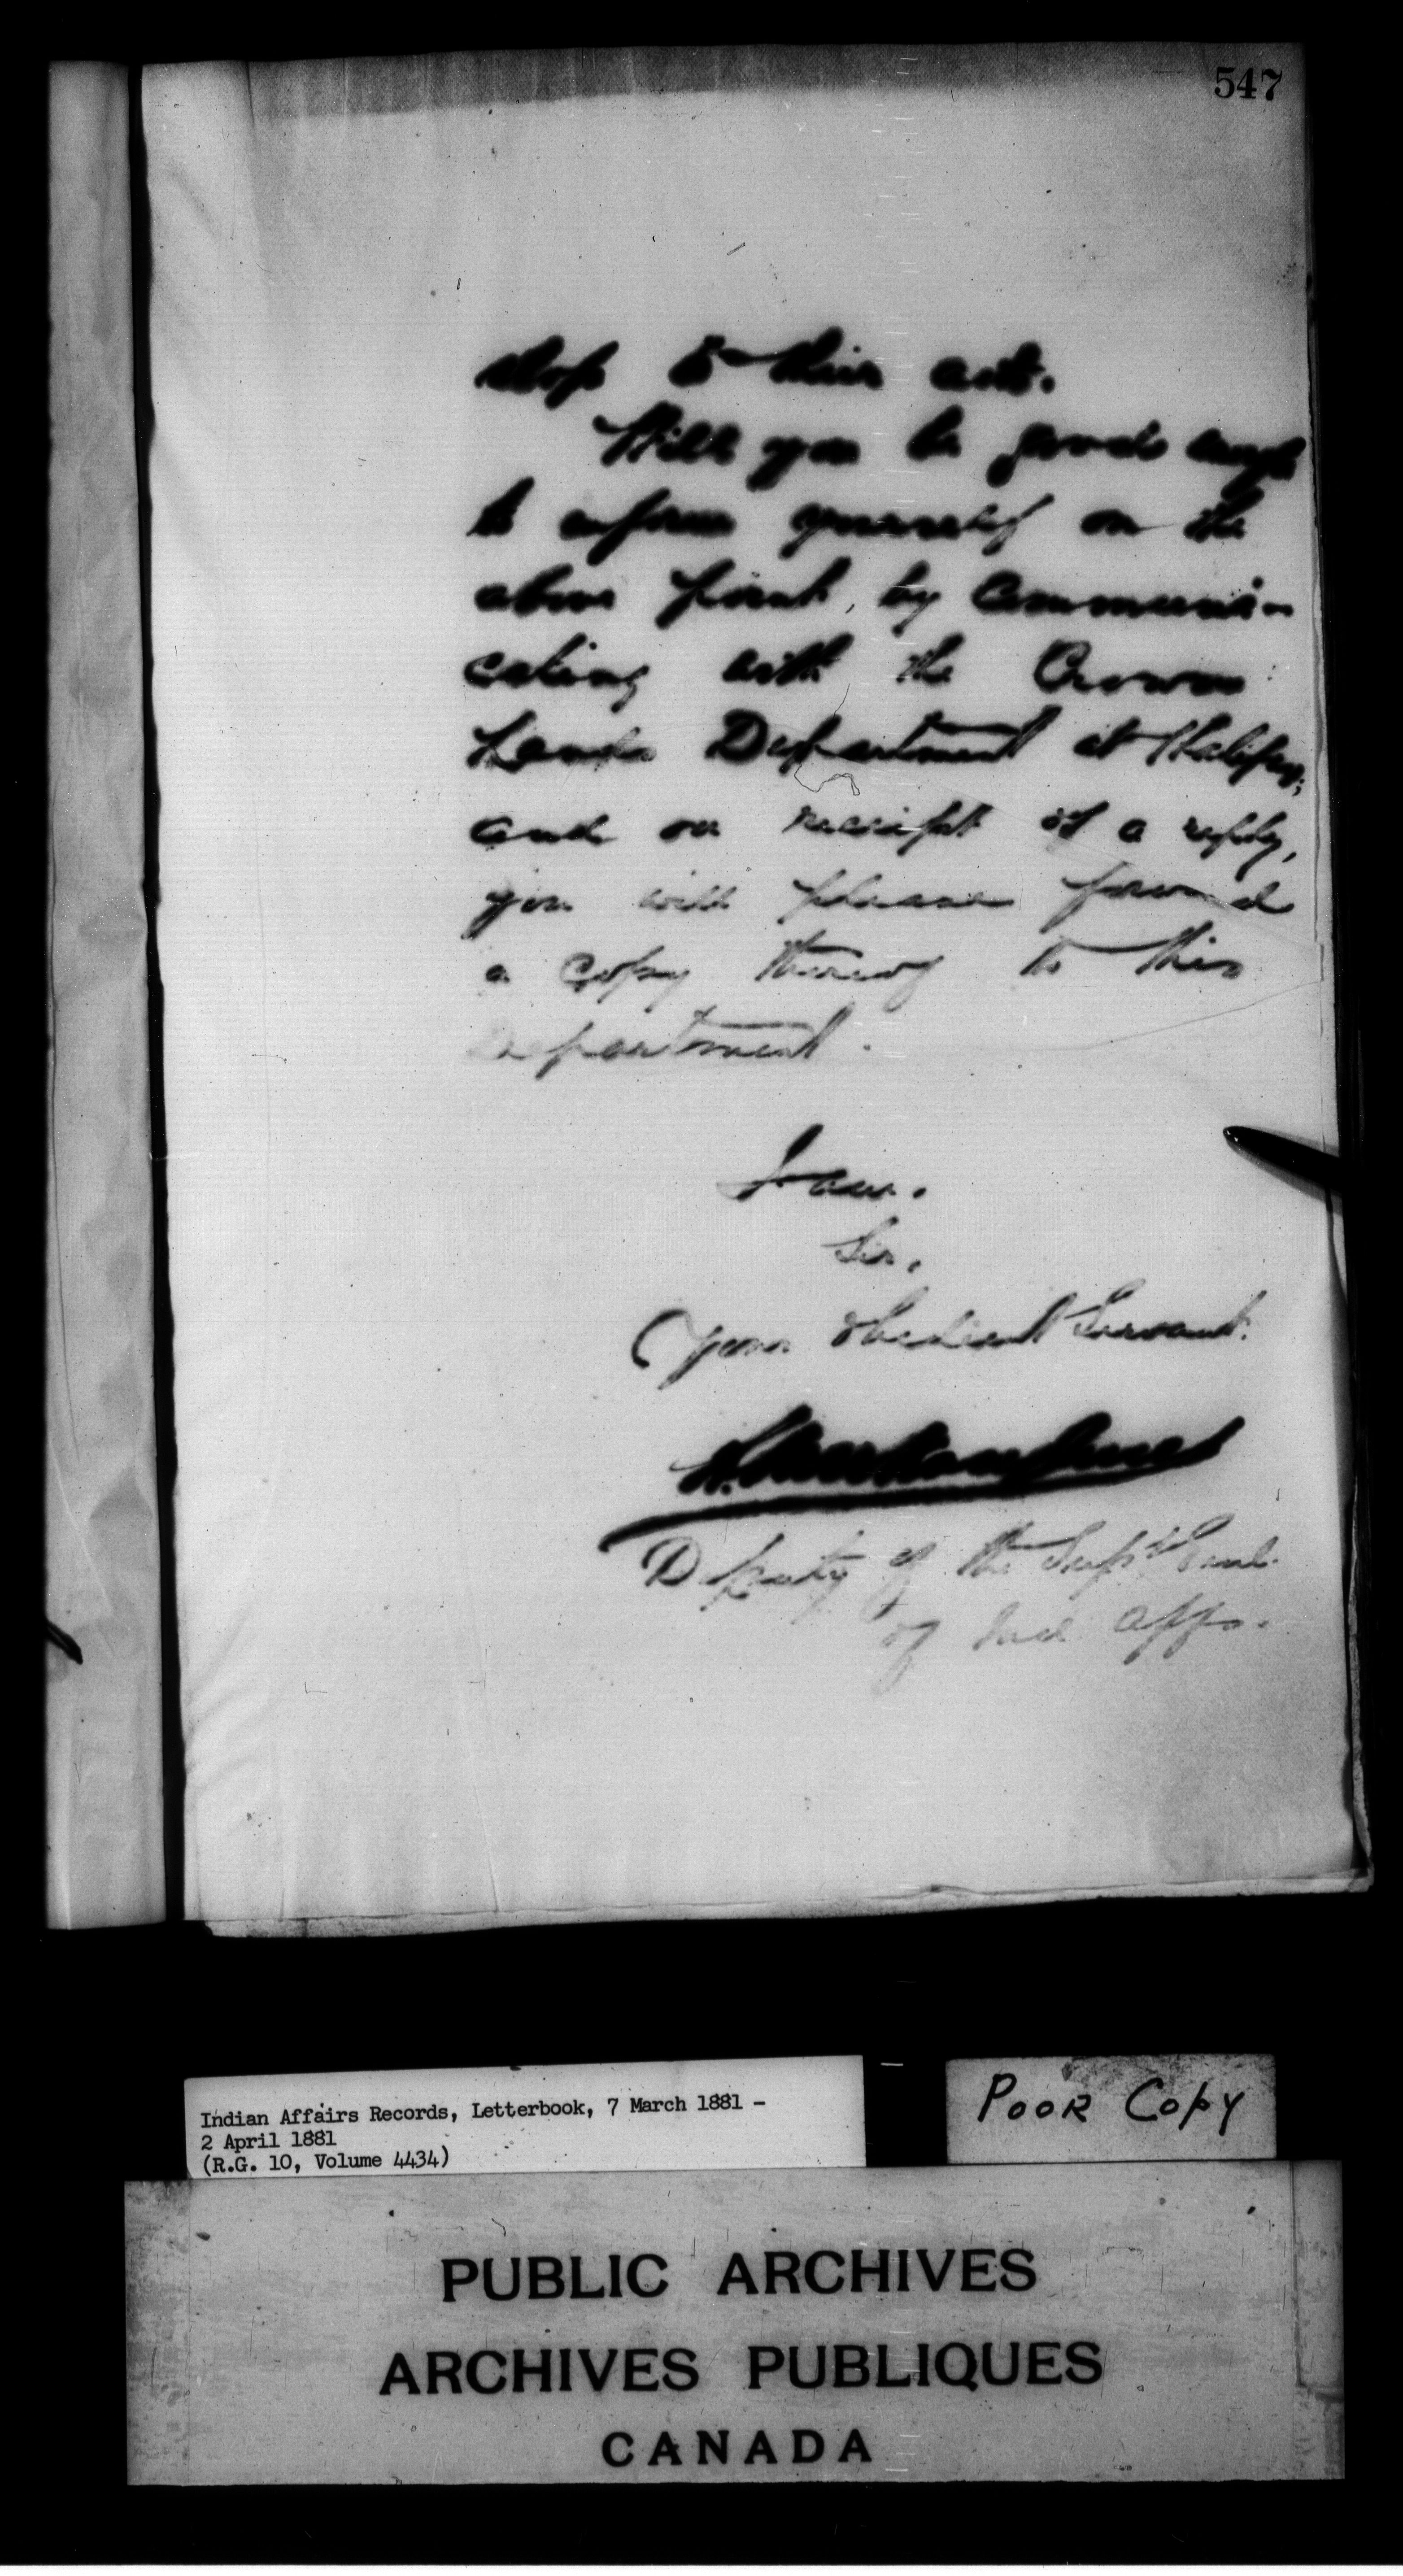 547
stop to their acts.
Will you be good enough
to inform yourself on the
above point, by communi-
cating with the Crown
Lands Department at Halifax;
and on receipt of a reply,
you will please forward
a copy thereof to this
Department.
I am.
Sir,
Your obedient Servant.
Deputy of the Supt Genl.
of Ind. Affs.
Indian Affairs Records, Letterbook, 7 March 1881 -
2 April 1881
(R.G. 10, Volume 4434)
POOR COPY
PUBLIC ARCHIVES
ARCHIVES PUBLIQUES
CANADA